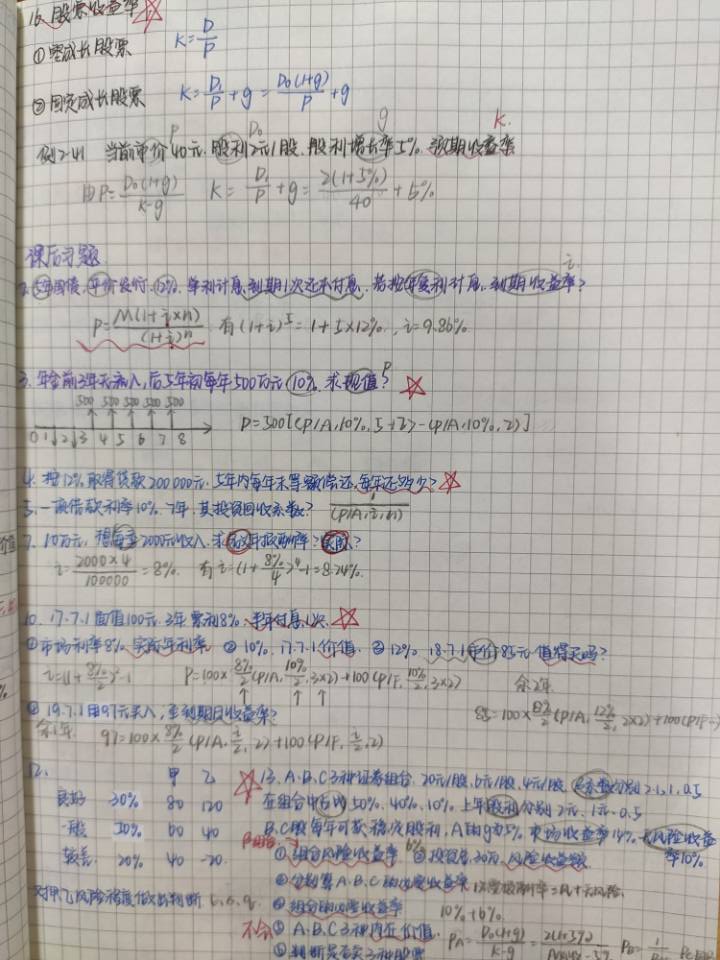 16. 股票收益率
①零成长股票 K=D/P
②固定成长股票 K=D₁/P+g=D₀(1+g)/P+g
P D₀ g K.
例2-41 当前市价40元.股利2元/股.股利增长率5%.预期收益率
由P=D₀(1+g)/K-g K=D₁/P+g=2(1+5%)/40+5%
课后习题
i.
2.5年国债,平价发行,12%,单利计息,到期1次还本付息.若按年复利计息,到期收益率?
P=M(1+i×n)/(1+i)ⁿ 有(1+i)⁵=1+5×12%.,i=9.86%
3.年金前3年无流入,后5年初每年500万元 10%.求现值? P
500 500 500 500 500
0 1 2 3 4 5 6 7 8
P=500[(P/A,10%,5+2)-(P/A,10%,2)]
4.按12%取得贷款200000元.5年内每年末等额偿还,每年还多少?
5.一项借款利率10%.7年,其投资回收系数? 1/(P/A,i,n)
7.10万元,想每季2000元收入.求
i=2000×4/100000=8%. 有i=(1+8%/4)⁴-1=8.24%.
10. 17.7.1面值100元.3年票利8%.半年付息1次.
①市场利率8%.实际年利率 ②10%.17.7.1价值. ③12%.18.7.1市价85元值得买吗?
i=(1+8%/2)²-1 P=100×8%/2(P/A,10%/2,3×2)+100(P/F,10%/2,3×2) 余2年
④19.7.1用97元买入,至到期日收益率? 85=100×8%/2(P/A,12%/2,2×2)+100(P/F
余1年. 97=100×8%/2(P/A,i/2,2)+100(P/F,i/2,2)
12. 甲 乙
良好 30% 80 120
一般 50% 60 40
较差 20% 40 -20
对甲乙风险程度做出判断
13.A.B.C3种证券组合.20元/股.6元/股.4元/股. 分别2.1.1.0.5
在组合中占的50%.40%.10%.上年股利分别2元.1元.0.5
B.C股每年可获稳定股利,A的g为5%.市场收益率14%.无风险收益率10%
①组合风险收益率 6% ②投资总30万.风险收益额
③分别算A.B.C的必要收益率
④组合的必要收益率 10%+6%.
⑤A.B.C3种内在价值. PA=D₀(1+g)/K-g
⑥判断是否买3种股票